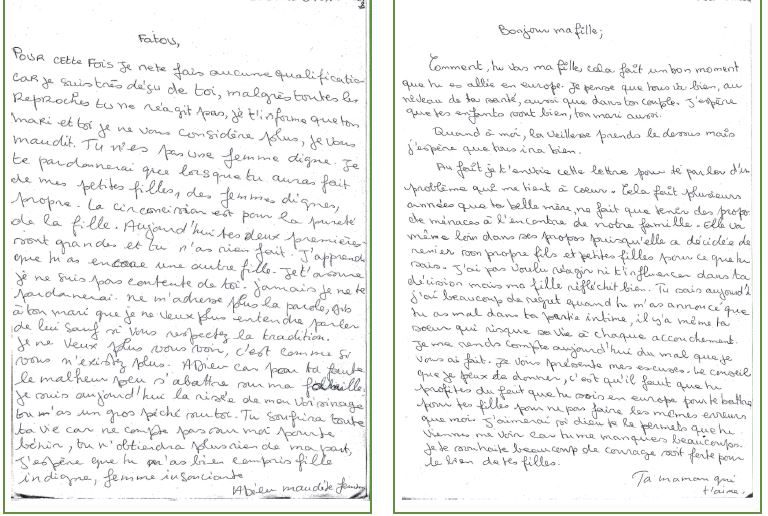 Fatou,
POUR CETTE FOIS Je ne te fais aucune qualification
car je suis très déçu de toi, malgrès toutes les
Reproches tu ne réagit pas, je t'informe que ton
mari et toi je ne vous considère plus, je vous
maudit. Tu n'es pas une femme digne. Je
te pardonnerai que lorsque tu auras fait
de mes petites filles, des femmes dignes,
propre. La circoncision est pour la pureté
de la fille. Aujourd'hui tes deux premières
sont grandes et tu n'as rien fait. J'apprend
que tu as encore une autre fille. Je t'avoue
je ne suis pas contente de toi. Jamais je ne te
pardonnerai. ne m'adresse plus la parole,
à ton mari que je ne veux plus entendre parler
de lui sauf si vous respectez la tradition.
Je ne veux plus vous voir, c'est comme si
vous n'existez plus. ADieu car pour ta faute
le malheur peu s'abattre sur ma famille.
Je suis aujourd'hui la risée de mon voisinage
tu m'as un gros péché sur toi. Tu souffrira toute
ta vie car ne compte pas sur moi pour te
bénir, tu n'obtiendra plus rien de ma part,
J'espère que tu m'as bien compris fille
indigne, femme insouciante
ADieu maudite femme
Bonjour ma fille;
Comment, tu vas ma fille cela fait un bon moment
que tu es allée en europe. Je pense que tous va bien, au
niveau de ta santé, aussi que dans ton couple. J'espère
que tes enfants sont bien, ton mari aussi.
Quand à moi, la vieillesse prends le dessus mais
j'espère que tous ira bien.
Au fait je t'envoie cette lettre pour te parler d'un
problème qui me tient à coeur. Cela fait plusieurs
années que ta belle mère, ne fait que tenir des propos
de menaces à l'encontre de notre famille. Elle va
même loin dans ses propos puisqu'elle a décidée de
renier son propre fils et petites filles pour ce que tu
sais. J'ai pas voulu réagir ni t'influencer dans ta
décision mais ma fille réfléchit bien. Tu sais aujourd'h
j'ai beaucoup de regret quand tu m'as annoncé que
tu as mal dans ta partie intime, il y'a même ta
soeur qui risque sa vie à chaque accouchement.
Je me rends compte aujourd'hui du mal que je
vous ai fait. Je vous présente mes excuses. Le conseil
que je peux te donner, c'est qu'il faut que tu
profites du fait que tu sois en europe pour te battre
pour tes filles pour ne pas faire les mêmes erreurs
que moi. J'aimerai si dieu te le permets que tu
viennes me voir car tu me manques beaucoups.
Je te souhaite beaucoup de courage soit forte pour
le bien de tes filles.
Ta maman qui
t'aime.